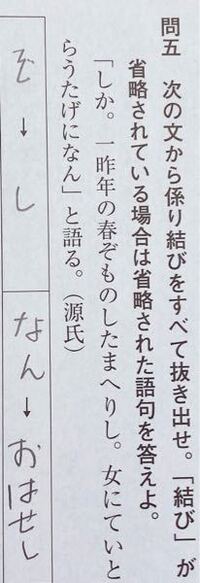 問五　次の文から係り結びをすべて抜き出せ。「結び」が
省略されている場合は省略された語句を答えよ。
「しか。一昨年の春ぞものしたまへりし。女にていと
らうたげになん」と語る。（源氏）
ぞ→し
なん→おはせし